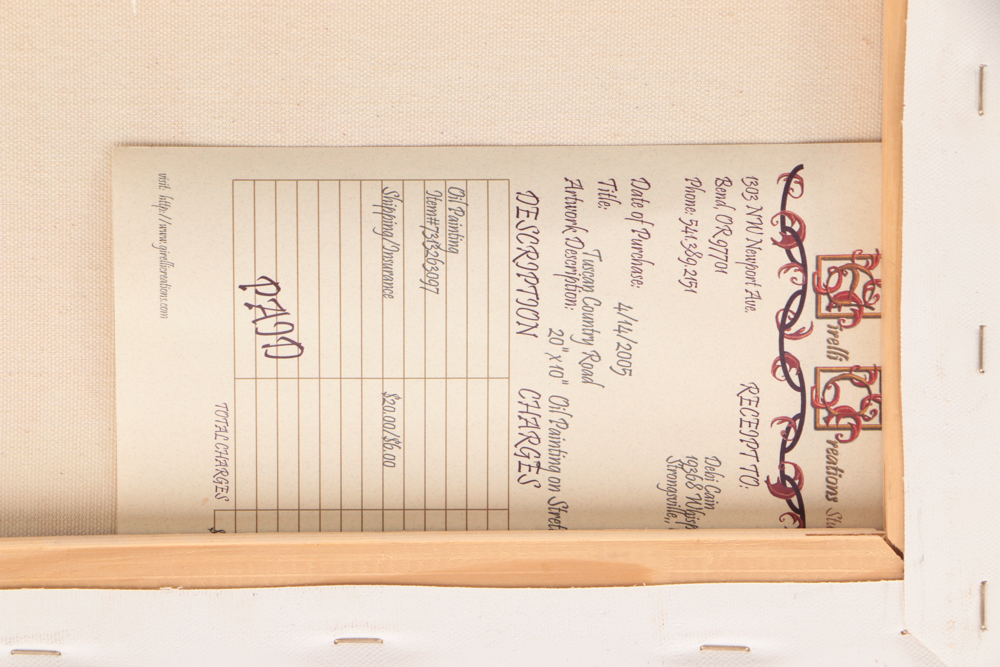 Girelli Creations
1303 NW Newport Ave.
Bend OR 97701
Phone: 541.389.251
RECEIPT TO:
Debi Cain
19368
Strongsville,
Date of Purchase: 4/14/2005
Title: Tuscan Country Road
Artwork Description: 20"x10" Oil Painting on
DESCRIPTION CHARGES
Oil Painting
Item#7313263097
Shipping/Insurance $20.00/$6.00
PAID
TOTAL CHARGES
visit: http://www.girellicreations.com